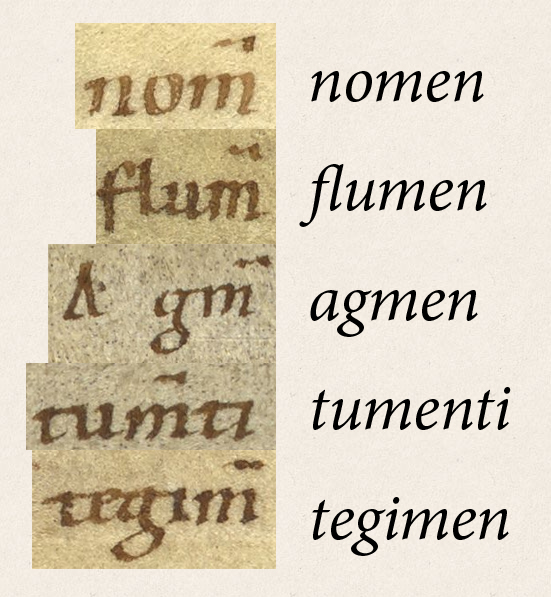 nom̄ nomen
flum̄ flumen
A gm̄ agmen
tum̄ti tumenti
tegim̄ tegimen